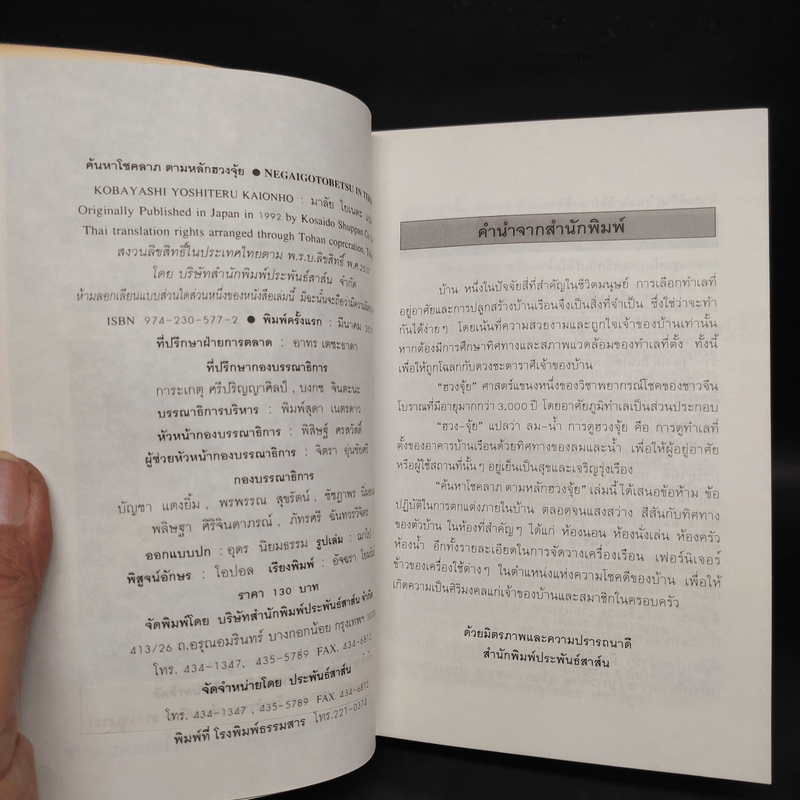 ค้นหาโชคลาภ ตามหลักฮวงจุ้ย ● NEGAIGOTOBETSU IN
KOBAYASHI YOSHITERU KAIONHO : มาลัย โยเนดะ
Originally Published in Japan in 1992 by Kosaido Shuppan
Thai translation rights arranged through Tohan coprcration,
สงวนลิขสิทธิ์ในประเทศไทยตาม พ.ร.บ.ลิขสิทธิ์ พ.ศ.
โดย บริษัทสำนักพิมพ์ประพันธ์สาส์น จำกัด
ห้ามลอกเลียนแบบส่วนใดส่วนหนึ่งของหนังสือเล่มนี้ มิฉะนั้นจะถือว่ามีความผิด
ISBN 974-230-577-2 ● พิมพ์ครั้งแรก : มีนาคม
ที่ปรึกษาฝ่ายการตลาด : อาทร เตชะธาดา
ที่ปรึกษากองบรรณาธิการ
การะเกตุ ศรีปริญญาศิลป์ , บงกช จินตะนะ
บรรณาธิการบริหาร : พิมพ์สุดา เนตรดาว
หัวหน้ากองบรรณาธิการ : พิสิษฐ์ ศรสวัสดิ์
ผู้ช่วยหัวหน้ากองบรรณาธิการ : จิตรา อุ่นชัยศรี
กองบรรณาธิการ
บัญชา แตงยิ้ม , พรพรรณ สุขรัตน์ , ชัชฎาพร
พลิษฐา ศิริจินดาภรณ์ , ภัทรศรี จันทรวิจิตร
ออกแบบปก : อุดร นิยมธรรม รูปเล่ม :
พิสูจน์อักษร : โอปอล เรียงพิมพ์ : อัจฉรา
ราคา 130 บาท
จัดพิมพ์โดย บริษัทสำนักพิมพ์ประพันธ์สาส์น จำกัด
413/26 ถ.อรุณอมรินทร์ บางกอกน้อย กรุงเทพฯ 10700
โทร. 434-1347, 435-5789 FAX. 434-6812
จัดจำหน่ายโดย ประพันธ์สาส์น
โทร. 434-1347 , 435-5789 FAX 434-6812
พิมพ์ที่ โรงพิมพ์ธรรมสาร โทร.221-0374
คำนำจากสำนักพิมพ์
บ้าน หนึ่งในปัจจัยสี่ที่สำคัญในชีวิตมนุษย์ การเลือกทำเลที่
อยู่อาศัยและการปลูกสร้างบ้านเรือนจึงเป็นสิ่งที่จำเป็น ซึ่งใช่ว่าจะทำ
กันได้ง่ายๆ โดยเน้นที่ความสวยงามและถูกใจเจ้าของบ้านเท่านั้น
หากต้องมีการศึกษาทิศทางและสภาพแวดล้อมของทำเลที่ตั้ง ทั้งนี้
เพื่อให้ถูกโฉลกกับดวงชะตาราศีเจ้าของบ้าน
"ฮวงจุ้ย" ศาสตร์แขนงหนึ่งของวิชาพยากรณ์โชคของชาวจีน
โบราณที่มีอายุมากกว่า 3,000 ปี โดยอาศัยภูมิทำเลเป็นส่วนประกอบ
"ฮวง-จุ้ย" แปลว่า ลม-น้ำ การดูฮวงจุ้ย คือ การดูทำเลที่
ตั้งของอาคารบ้านเรือนด้วยทิศทางของลมและน้ำ เพื่อให้ผู้อยู่อาศัย
หรือผู้ใช้สถานที่นั้นๆ อยู่เย็นเป็นสุขและเจริญรุ่งเรือง
"ค้นหาโชคลาภ ตามหลักฮวงจุ้ย" เล่มนี้ ได้เสนอข้อห้าม ข้อ
ปฏิบัติในการตกแต่งภายในบ้าน ตลอดจนแสงสว่าง สีสันกับทิศทาง
ของตัวบ้าน ในห้องที่สำคัญๆ ได้แก่ ห้องนอน ห้องนั่งเล่น ห้องครัว
ห้องน้ำ อีกทั้งรายละเอียดในการจัดวางเครื่องเรือน เฟอร์นิเจอร์
ข้าวของเครื่องใช้ต่างๆ ในตำแหน่งแห่งความโชคดีของบ้าน เพื่อให้
เกิดความเป็นศิริมงคลแก่เจ้าของบ้านและสมาชิกในครอบครัว
ด้วยมิตรภาพและความปรารถนาดี
สำนักพิมพ์ประพันธ์สาส์น